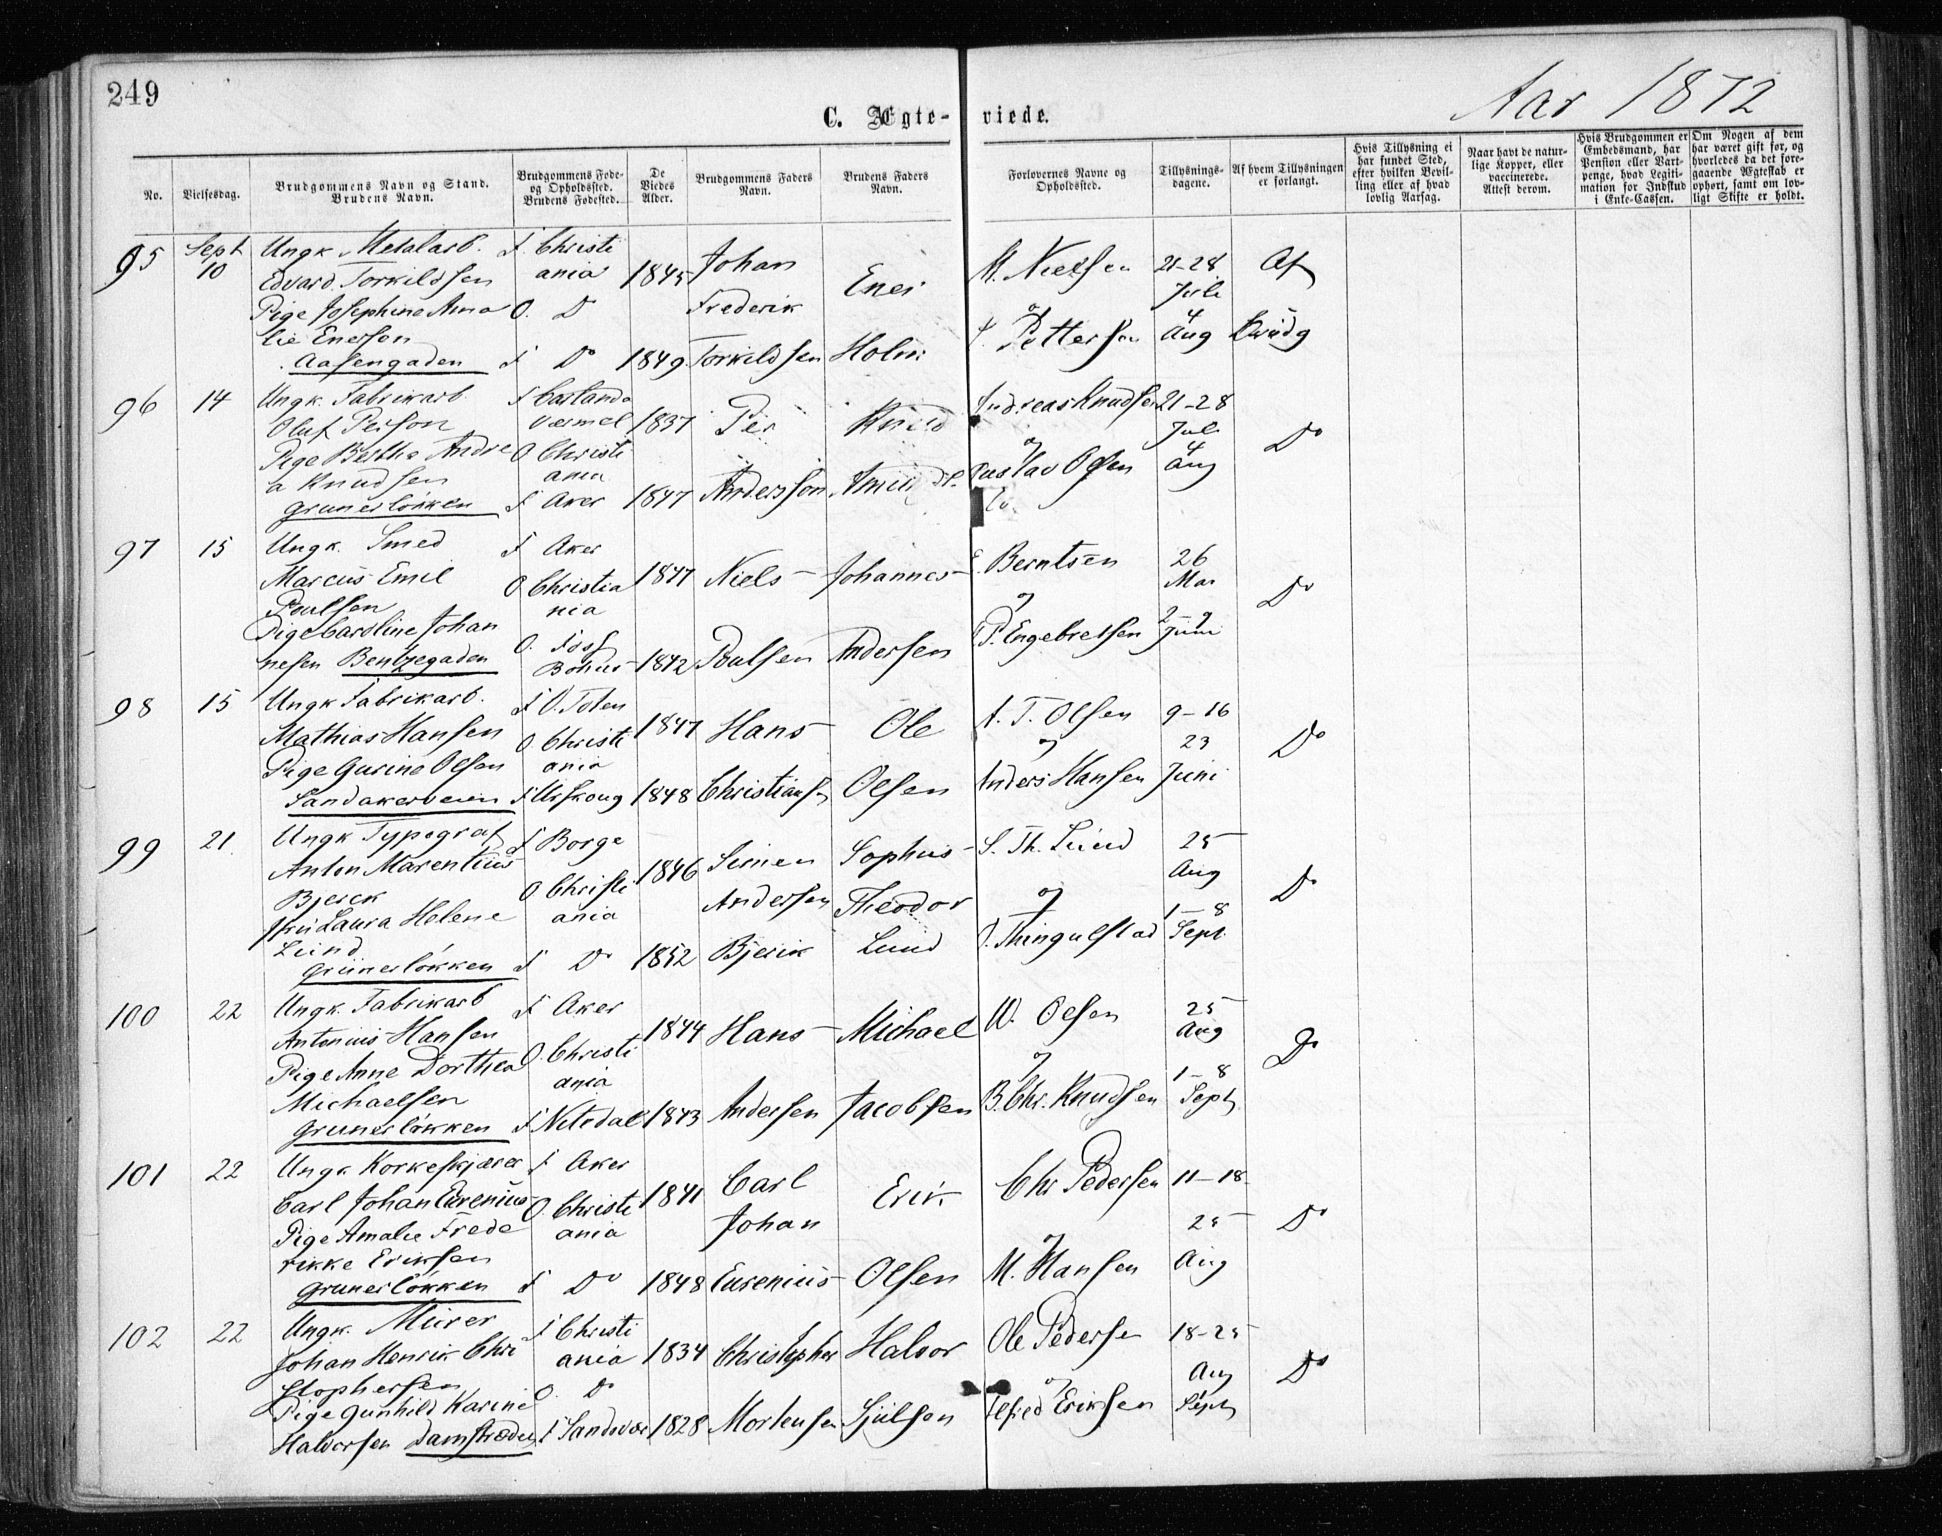 249
Aar 1872
C. Ægte-viede.
No.
Vielsesdag.
Brudgommens Navn og Stand.
Brudens Navn.
Brudgommens Føde-
og Opholdssted.
Brudens Fødested.
De
Viedes
Alder.
Brudgommens Faders
Navn.
Brudens Faders
Navn.
Forlovernes Navne og
Opholdssted.
Tillysnings-
dagene.
Af hvem Tillysningen
er forlangt.
Hvis Tillysning ei
har fundet Sted,
efter hvilken Bevil-
ling eller af hvad
lovlig Aarsag.
Naar havt de natur-
lige Kopper, eller
vaccinerede.
Attest derom.
Hvis Brudgommen er
Embedsmand, har
Pension eller Vart-
penge, hvad Legiti-
mation for Indskud
i Enke-Cassen.
Om Nogen af dem
har været gift før, og
hvorledes da det fore-
gaaende Ægteskab er
ophørt, samt om lov-
ligt Skifte er holdt.
95 Sept 10
Ungk. Metalarb.
Edvard Torkildsen
Pige Josephine Ama
lie Enersen
Aasengaden
F Christi
ania
O. Do
F Do
1845
1849
Johan
Frederik
Torkildsen
Ener
Holm
M. Nielsen
og
Pettersen
21-28
Juli
4
Aug
Af
Brudg
96 14
Ungk. Fabrikarb.
Oluf Person
Pige Berthe Andre
a Knudsen
Grunerløkken
F Carlanda
Vermel
O Christi
ania
F Aker
1837
1847
Per
Andersson
Knud
Andreas Knudsen
og
Gustav Olsen
21-28
Juli
4
Aug
Do
97 15
Ungk. Smed
Marcus Emil
Poulsen
Pige Caroline Johan
nesen Bentzegaden
F Aker
O Christia
nia
O. Foss
Bohus
1847
1842
Niels
Poulsen
Johannes
Andersen
Berntsen
og
P. Engebretsen
26
Mai
2-9
Juni
Do
98 15
Ungk Fabrikarb.
Mathias Hansen
Pige Gurine Olsen
Sandakerveien
F O. Toten
O Christi
ania
F Urskoug
1847
1848
Hans
Christiansen
Ole
Olsen
A. T. Olsen
og
Anders Hansen
9-16
23
Juni
Do
99 21.
Ungk Typograf
Anton Marentius
Bjerck
Frk Laura Helene
Lund
Grünerløkken
F Borge
O Christi
ania
F Do
1846
1852
Simen
Andersen
Bjerck
Sophus
Theodor
Lund
S. Th. Lund
og
O. Thingulstad
25
Aug
1-8
Sept.
Do
100 22
Ungk. Fabrikarb
Antonius Hansen
Pige Anne Dorthea
Michaelsen
Grunerløkken
F Aker
O. Christi
ania
F Nitedal
1844
1843
Hans
Andersen
Michael
Jacobsen
W. Olsen
og
B. Chr. Knudsen
25
Aug
1-8
Sept
Do
101 22
Ungk Korkeskjærer
Carl Johan Eurenius
Pige Amalie Frede
rikke Eriksen
Grunerløkken
F Aker
O Christi
ania
F Do
1841
1848
Carl
Johan
Eurenius
Erik
Olsen
Chr Pedersen
og
M. Hansen
11-18
25
Aug
Do
102 22
Ungk. Murer
Johan Henrik Chri
stophersen
Pige Gunhild Karine
Halvorsen Damstrædet
F Christi
ania
O. Do
F Sandsvær
1834
1828
Christopher
Mortensen
Halvor
Sjulsen
Ole Pedersen
og
Alfred Eriksen
18-25
Aug
1
Sept
Do